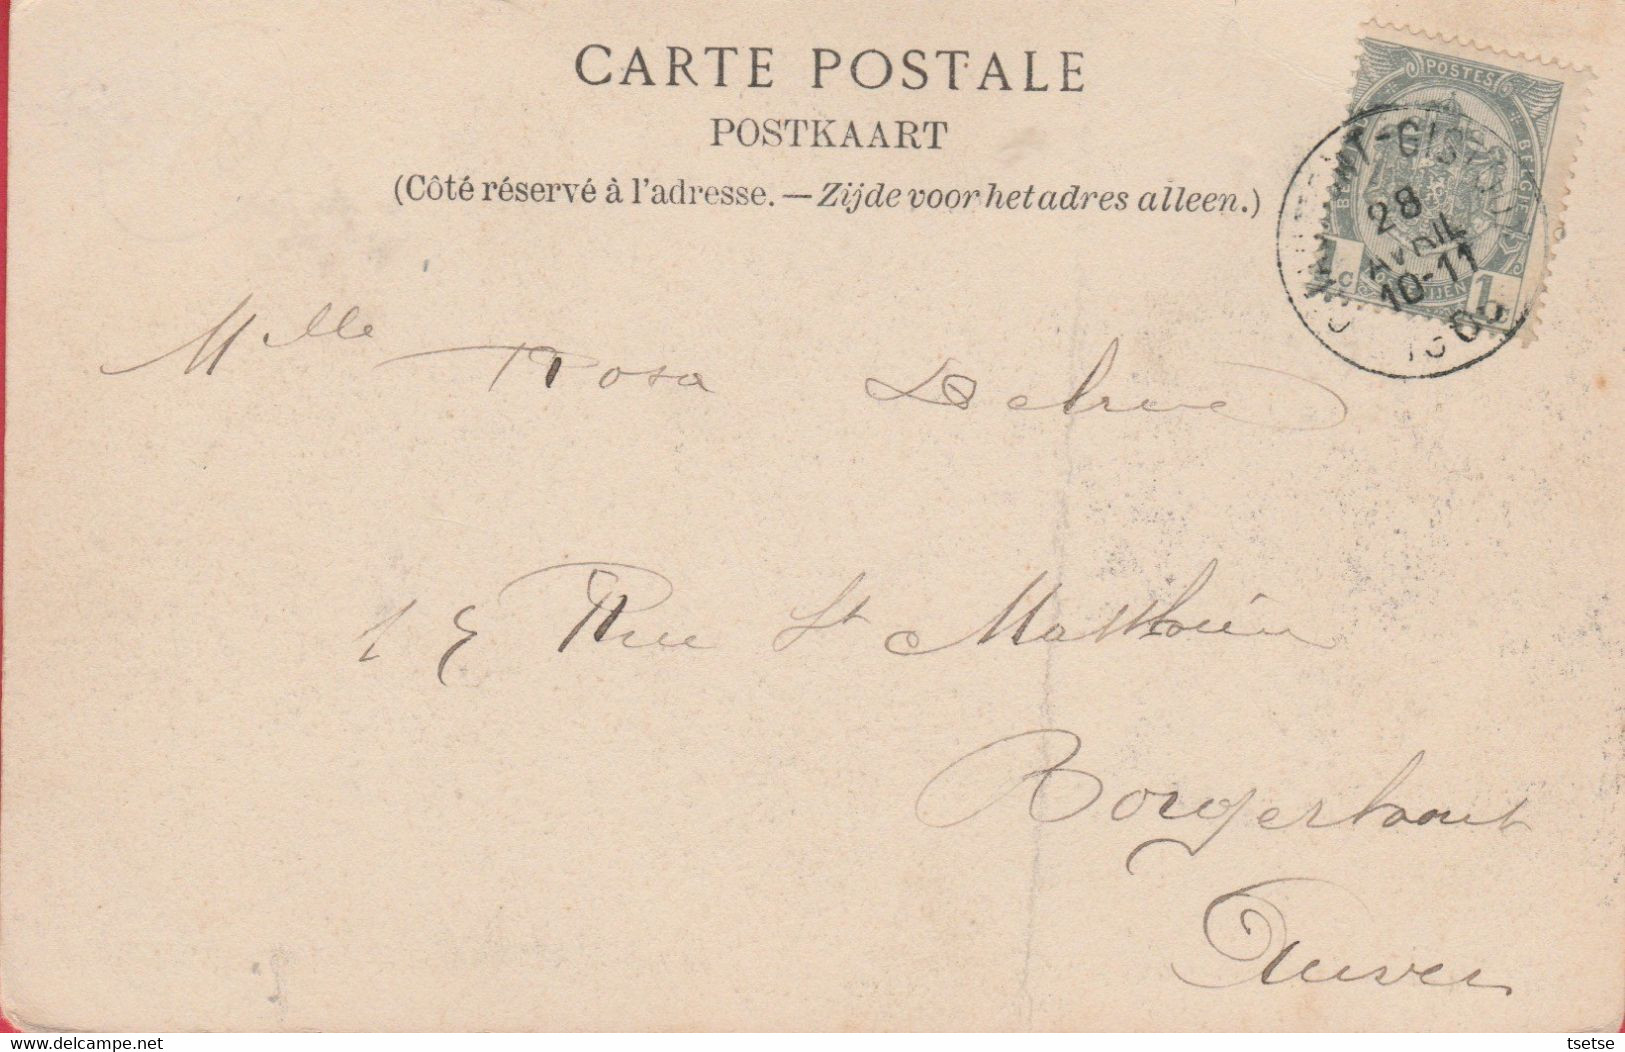 CARTE POSTALE
POSTKAART
(Côté réservé à l'adresse. — Zijde voor het adres alleen.)
POSTES
BELGIE
1c 1c
28
AVRIL
10-11
Mlle Rosa Delrue
15 Rue St Mathieu
Borgerhout
Anvers
delcampe.net
tsetse